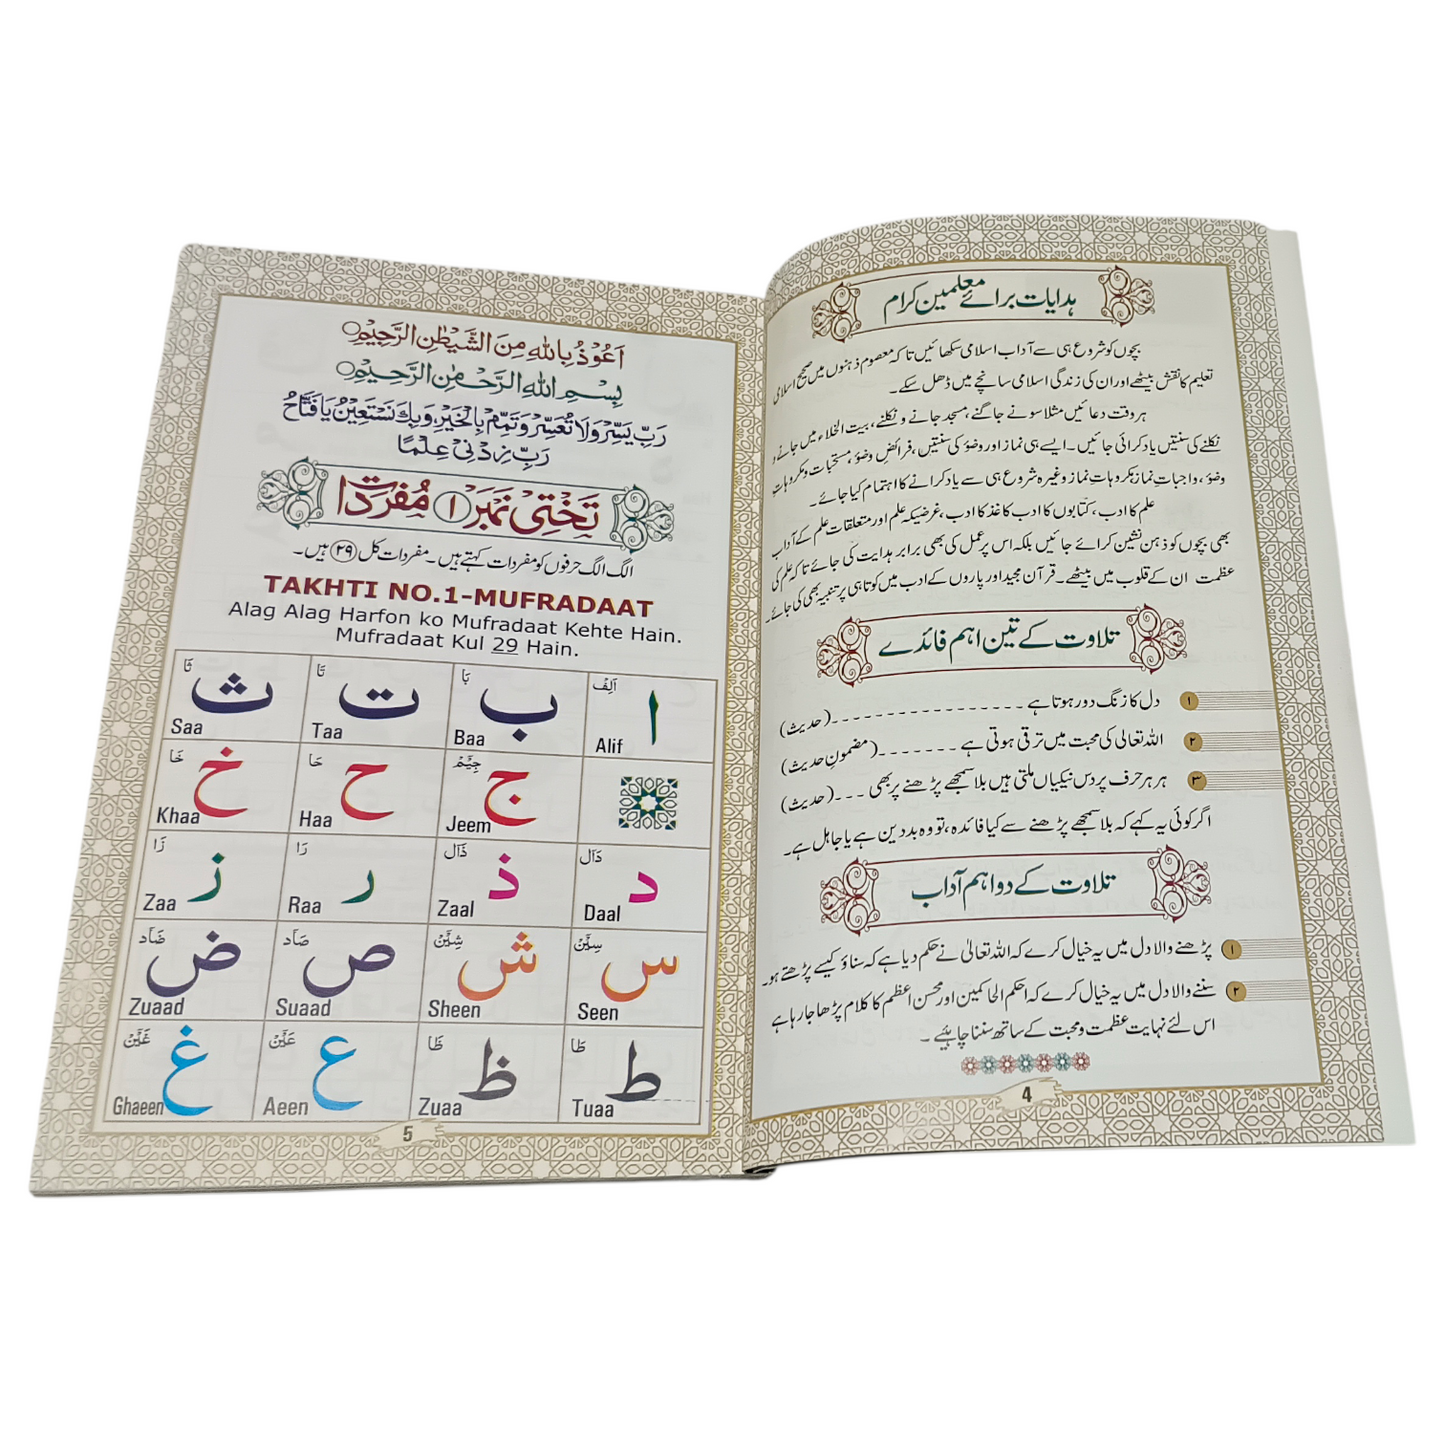 ہدایات برائے معلمین کرام
بچوں کو شروع ہی سے آداب اسلامی سکھائیں تاکہ معصوم ذہنوں میں صحیح اسلامی
تعلیم کا نقش بیٹھے اور ان کی زندگی اسلامی سانچے میں ڈھل سکے۔
ہر وقت دعائیں مثلا سونے جاگنے، مسجد جانے و نکلنے، بیت الخلاء میں جانے و
نکلنے کی سنتیں یاد کرائی جائیں۔ ایسے ہی نماز اور وضو کی سنتیں، فرائض وضو، مستحبات و مکروہات
وضو، واجبات نماز مکروہات نماز وغیرہ شروع ہی سے یاد کرانے کا اہتمام کیا جائے۔
علم کا ادب، کتابوں کا ادب کاغذ کا ادب، غرضیکہ علم اور متعلقات علم کے آداب
بھی بچوں کو ذہن نشین کرائے جائیں بلکہ اس پر عمل کی بھی برابر ہدایت کی جائے تاکہ علم کی
عظمت ان کے قلوب میں بیٹھے۔ قرآن مجید اور پاروں کے ادب میں کوتاہی پر تنبیہ بھی کی جائے۔
تلاوت کے تین اہم فائدے
۱ دل کا زنگ دور ہوتا ہے - - - - - - - - - - - - - - - - - (حدیث)
۲ اللہ تعالی کی محبت میں ترقی ہوتی ہے - - - - - - - (مضمون حدیث)
۳ ہر ہر حرف پر دس نیکیاں ملتی ہیں بلا سمجھے پڑھنے پر بھی - - - (حدیث)
اگر کوئی یہ کہے کہ بلا سمجھے پڑھنے سے کیا فائدہ، تو وہ بددین ہے یا جاہل ہے۔
تلاوت کے دو اہم آداب
۱ پڑھنے والا دل میں یہ خیال کرے کہ اللہ تعالیٰ نے حکم دیا ہے کہ سناؤ کیسے پڑھتے ہو۔
۲ سننے والا دل میں یہ خیال کرے کہ احکم الحاکمین اور محسن اعظم کا کلام پڑھا جا رہا ہے
اس لئے نہایت عظمت و محبت کے ساتھ سننا چاہیئے۔
4
اَعُوْذُ بِاللهِ مِنَ الشَّيْطٰنِ الرَّجِيْمِ
بِسْمِ اللهِ الرَّحْمٰنِ الرَّحِيْمِ
رَبِّ يَسِّرْ وَلَا تُعَسِّرْ وَتَمِّمْ بِالْخَيْرِ وَبِكَ نَسْتَعِيْنُ يَا فَتَّاحُ
رَبِّ زِدْنِيْ عِلْمًا
تَخْتِیْ نَمْبَر ۱ مُفْرَدَات
الگ الگ حرفوں کو مفردات کہتے ہیں۔ مفردات کل ۲۹ ہیں۔
TAKHTI NO.1-MUFRADAAT
Alag Alag Harfon ko Mufradaat Kehte Hain.
Mufradaat Kul 29 Hain.
اَلِفْ ا Alif بَا ب Baa تَا ت Taa ثَا ث Saa
جِيْمْ ج Jeem حَا ح Haa خَا خ Khaa
دَالْ د Daal ذَالْ ذ Zaal رَا ر Raa زَا ز Zaa
سِيْنْ س Seen شِيْنْ ش Sheen صَادْ ص Suaad ضَادْ ض Zuaad
طَا ط Tuaa ظَا ظ Zuaa عَيْنْ ع Aeen غَيْنْ غ Ghaeen
5